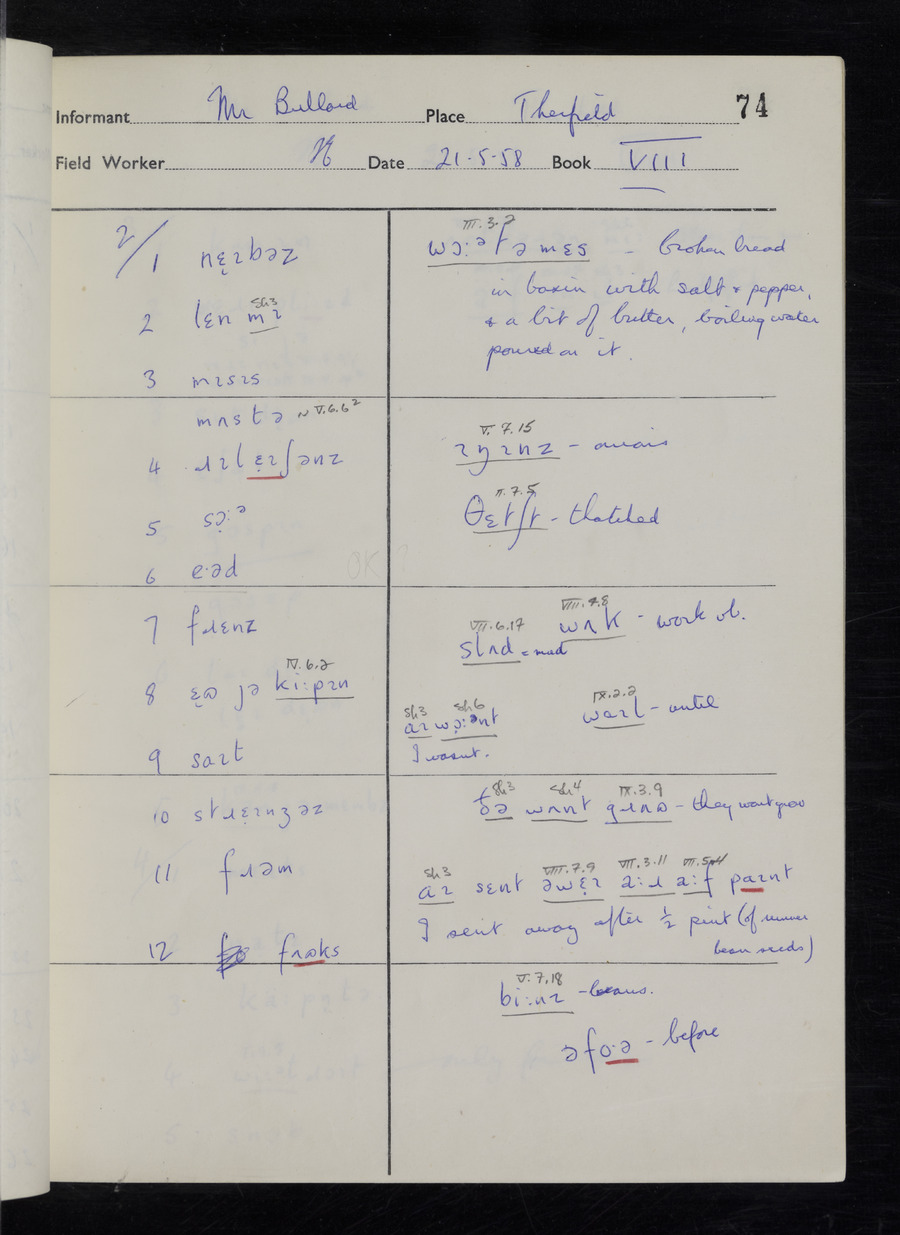 Informant Mr Bullard Place Therfield 74
Field Worker H Date 21-5-58 Book VIII
2/1 nɛɪbəz
2 lɛn mɪ Sh3
3 mɪsɪs
mʌstə ~ V.6.6²
4 ɹɪlɛɪʃənz
5 sɔ̣:ᵊ
6 e·əd
OK?
7 fɹɛnz
8 ɛɷ jə ki:pɪn IV.6.2
9 saɪt
10 stɹɛɪnʒəz
11 fɹəm
12 fʌɷks
III.3.7
wɔ:ᵊtə mɛs - broken bread
in basin with salt & pepper,
& a bit of butter, boiling water
poured on it.
V.7.15
ɪŋɪnz - onions
II.7.5
θɛtʃt - thatched
VII.6.17 VIII.4.8
slʌd = mud wʌk - work vb.
Sh3 Sh6 IX.2.2
aɪ wɔ̣:ᵊnt waɪl - until
I wasn't.
Sh3 Sh4 IX.3.9
ðə wʌnt gɹʌɷ - they won't grow
Sh3 VIII.7.9 VII.3.11 VII.5.4
aɪ sɛnt əwɛɪ a:ɹ a:f paɪnt
I sent away after ½ pint (of runner
bean seeds)
V.7.18
bi:nz - beans.
əfo·ə - before